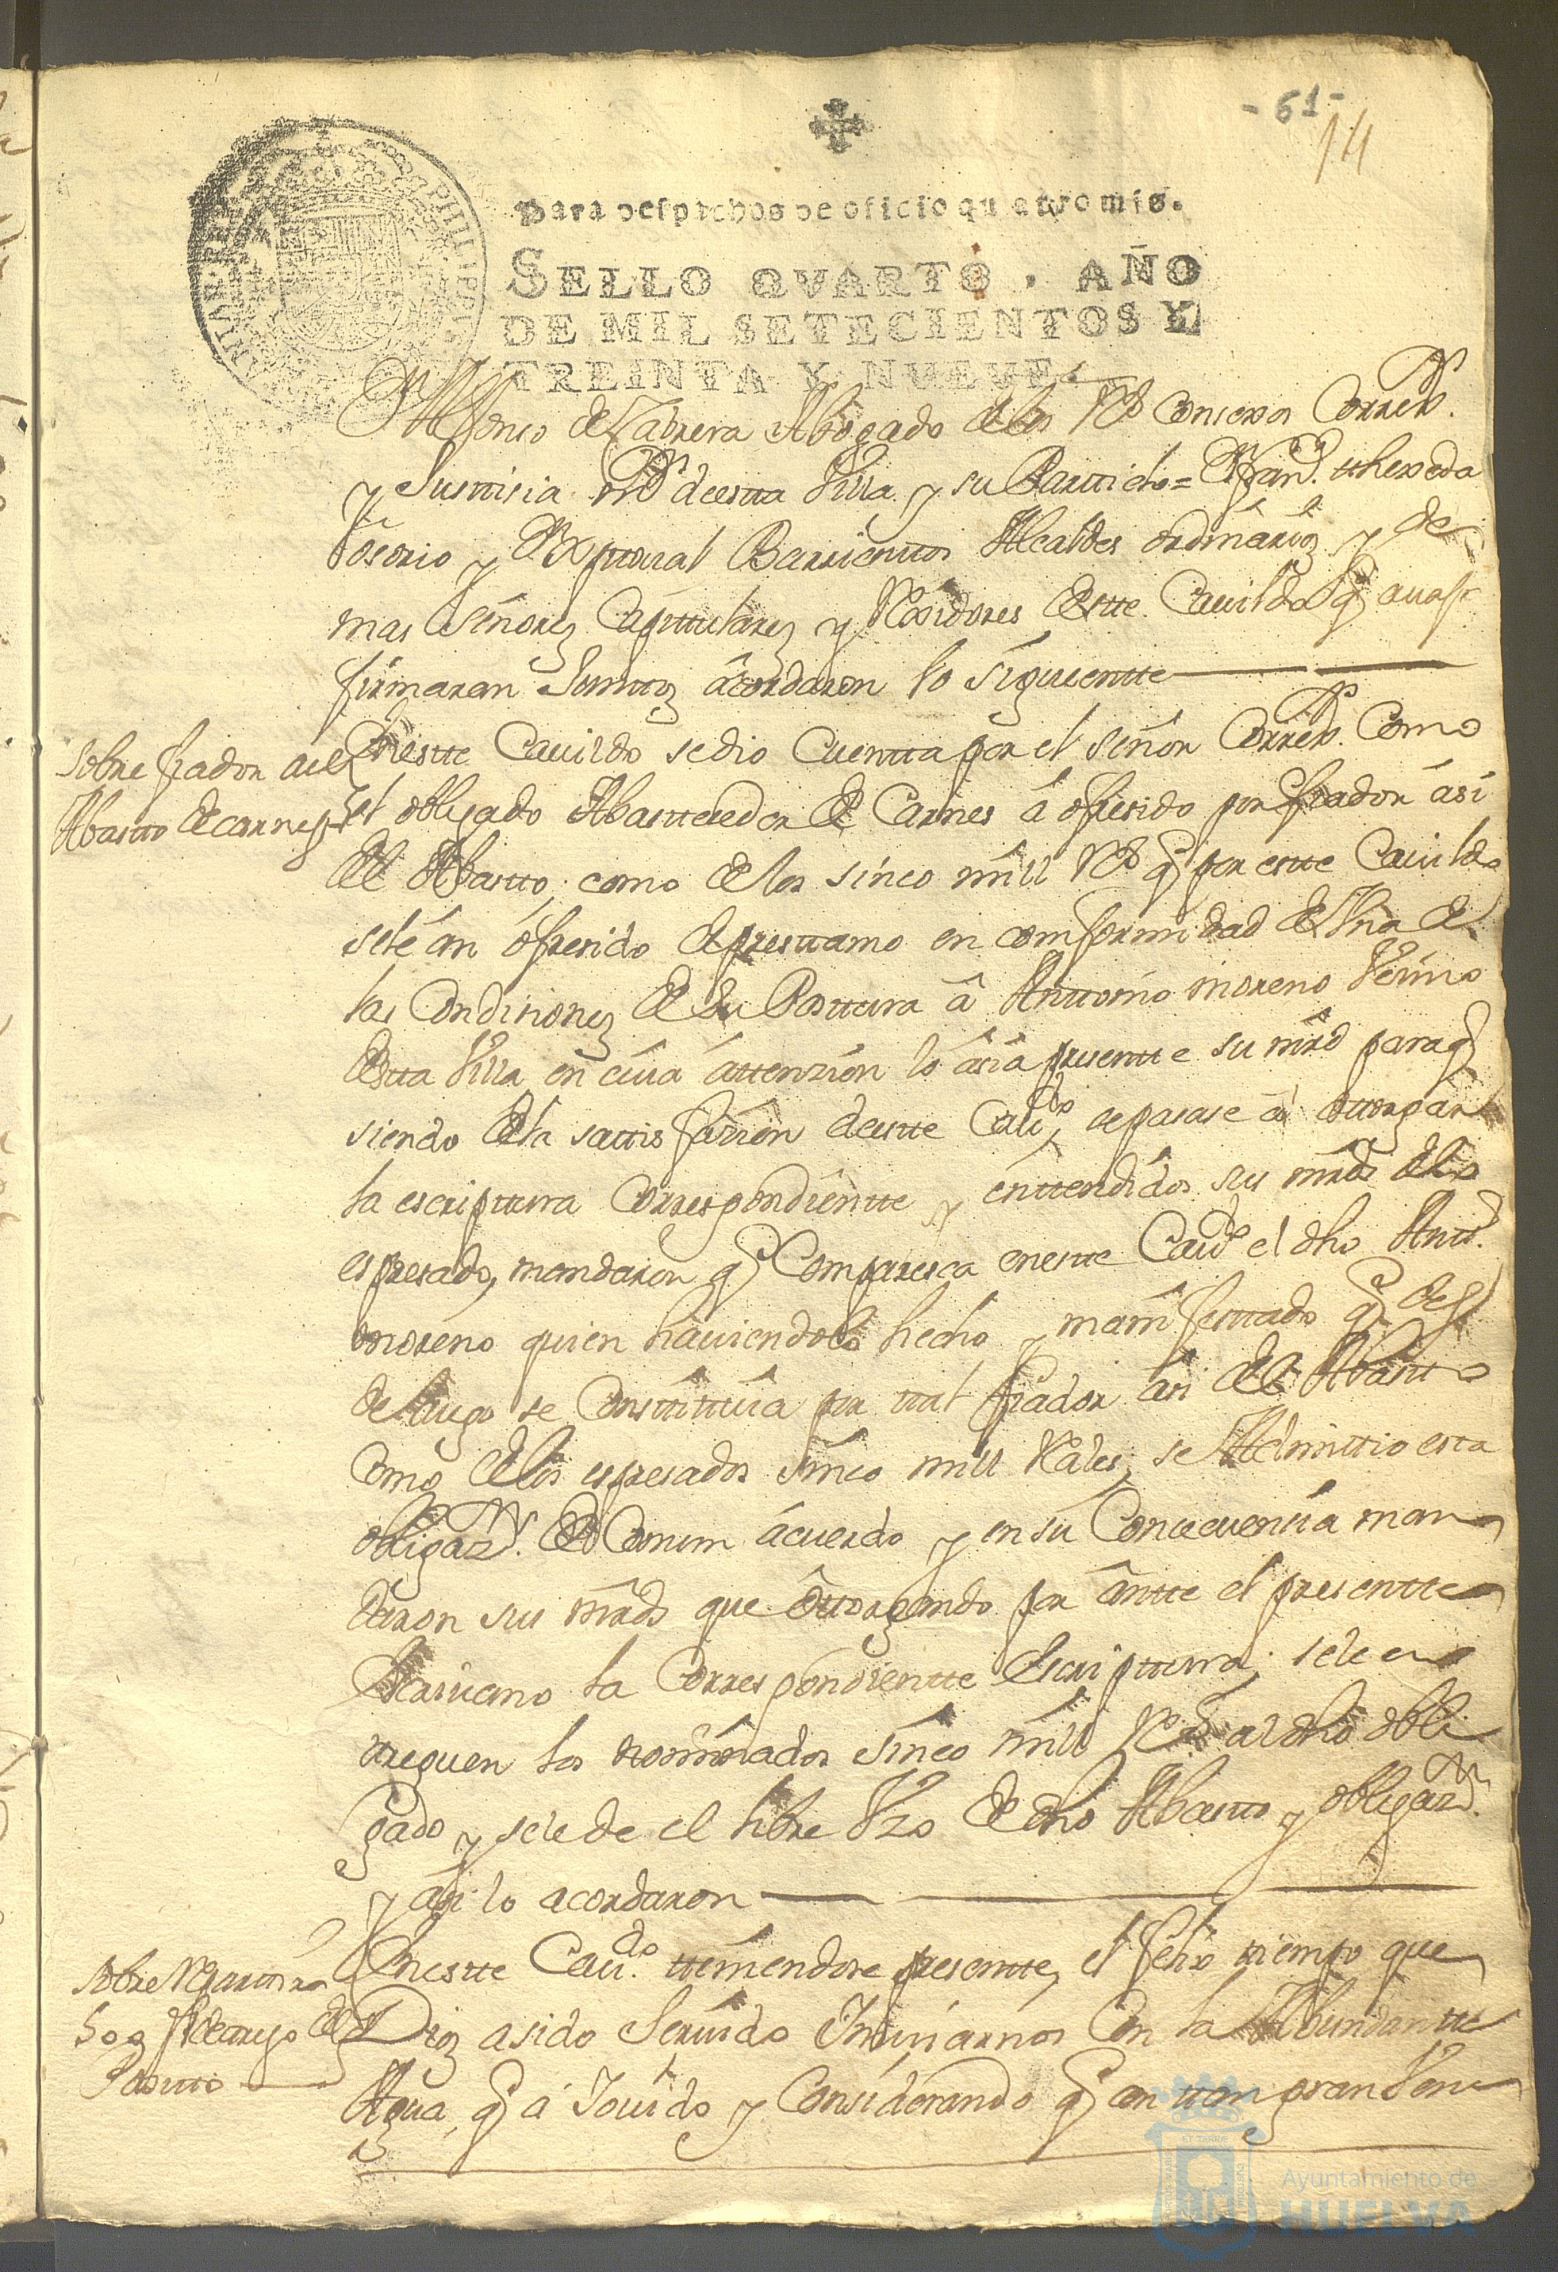 - 61 -
14
Para despachos de oficio quatro mrs.
SELLO QVARTO, AÑO
DE MIL SETECIENTOS Y
TREINTA Y NUEVE.
PHILIPPVS
Dn Alfonso de Cabrera Abogado de los Rs Consexos Correxr.
y Justtisia mr deestta Villa y su Parttido = Dn Fran.co
osorio y Dn Xpttoval Barrienttos Alcaldes ordinarios y de
mas señores Capittulares y Rexidores destte Cavildo q avajo
firmaran Junttos acordaron lo siguientte
Sobre fiador del
Abastto de carnes
Enestte Cavildo se dio Cuentta por el señor Correxr. Como
el obligado Abasttesedor de Carnes á ofresido por fiador ási
del Abastto como de los sinco mill Rs q por estte Cavildo
sele án ófresido de prestamo en comformidad de Vna de
las Condisiones de su Posttura â Anttonio moreno Vesino
destta Villa en cuia áttenzión lo asia presentte su mrd para q
siendo de la sattisfazion deestte Cavdo se pasase a ottorgar
la escripttura Correspondientte y enttendidos sus mrds de lo
espresado, mandaron q Comparesca enestte Cavdo el dho Antto
moreno quien haviendolo hecho y manifesttado q des
de luego se Consttittuia por ttal fiador asi del Abastto
Como de los espresados sinco mill Reales, se Admittio esta
obligazn. de Comun ácuerdo y en su Concecuensia man
daron sus mrds que ottorgando por ântte el presentte
Escrivano la Correspondientte Escripttura, sele en
treguen los nominados sinco mill Rs al dho obli
gado y sele de el libre Vzo de dho Abastto y obligazn.
y así lo acordaron
Sobre
Possitto
Enestte Cavdo. tteniendose presentte, el felix ttiempo que
Dios a sido Servido Inviarnos Con la Abundantte
Agua, q á Llovido y Considerando q en ttan gran Ven
Ayuntamiento de
HUELVA